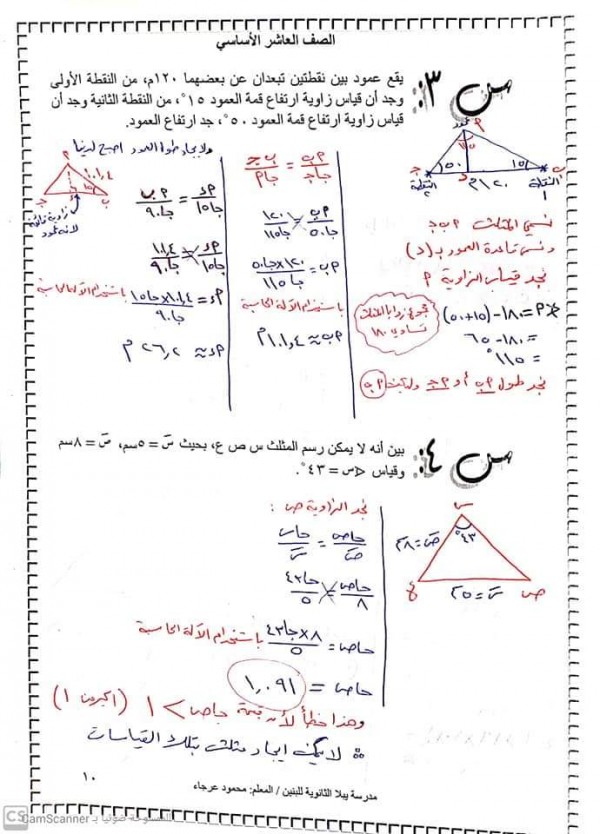 الصف العاشر الأساسي
س٣:
يقع عمود بين نقطتين تبعدان عن بعضهما ١٢٠م، من النقطة الأولى
وجد أن قياس زاوية ارتفاع قمة العمود ١٥°، من النقطة الثانية وجد أن
قياس زاوية ارتفاع قمة العمود ٥٠°، جد ارتفاع العمود.
عمود
م
٥٠
١٥
ب
جـ
د
١٢٠م
النقطة ١
النقطة ٢
نسمي المثلث م ب جـ
ونسمي قاعدة العمود بـ (د)
نجد قياس الزاوية م
∢م = ١٨٠ - (١٥ + ٥٠)
= ١٨٠ - ٦٥
= ١١٥°
مجموع زوايا المثلث
تساوي ١٨٠
نجد طول م ب أو م جـ وليكن م ب
م ب / جا جـ = ب جـ / جا م
م ب / جا ٥٠ = ١٢٠ / جا ١١٥
م ب = ١٢٠ × جا ٥٠ / جا ١١٥
باستخدام الآلة الحاسبة
م ب ≈ ١٠١,٤ م
ولإيجاد طول العمود اصبح لدينا
م
١٠١,٤
١٥
ب
جـ
زاوية قائمة
لأنه عمود
م د / جا ١٥ = م ب / جا ٩٠
م د / جا ١٥ = ١٠١,٤ / جا ٩٠
م د = ١٠١,٤ × جا ١٥ / جا ٩٠
باستخدام الآلة الحاسبة
م د ≈ ٢٦,٢ م
س٤:
بين أنه لا يمكن رسم المثلث س ص ع، بحيث سَ = ٥سم، صَ = ٨سم
وقياس ∢س = ٤٣°.
س
٤٣°
صَ = ٨
سَ = ٥
ع
ص
نجد الزاوية ص :
جا ص / صَ = جا س / سَ
جا ص / ٨ = جا ٤٣ / ٥
جا ص = ٨ × جا ٤٣ / ٥ باستخدام الآلة الحاسبة
جا ص = ١,٠٩١
وهذا خطأ لأن قيمة جا ص > ١ (اكبر من ١)
∴ لا يمكن ايجاد مثلث بتلك القياسات
١٠
مدرسة يبلا الثانوية للبنين / المعلم: محمود عرجاء
CS
الممسوحة ضوئيا بـ CamScanner